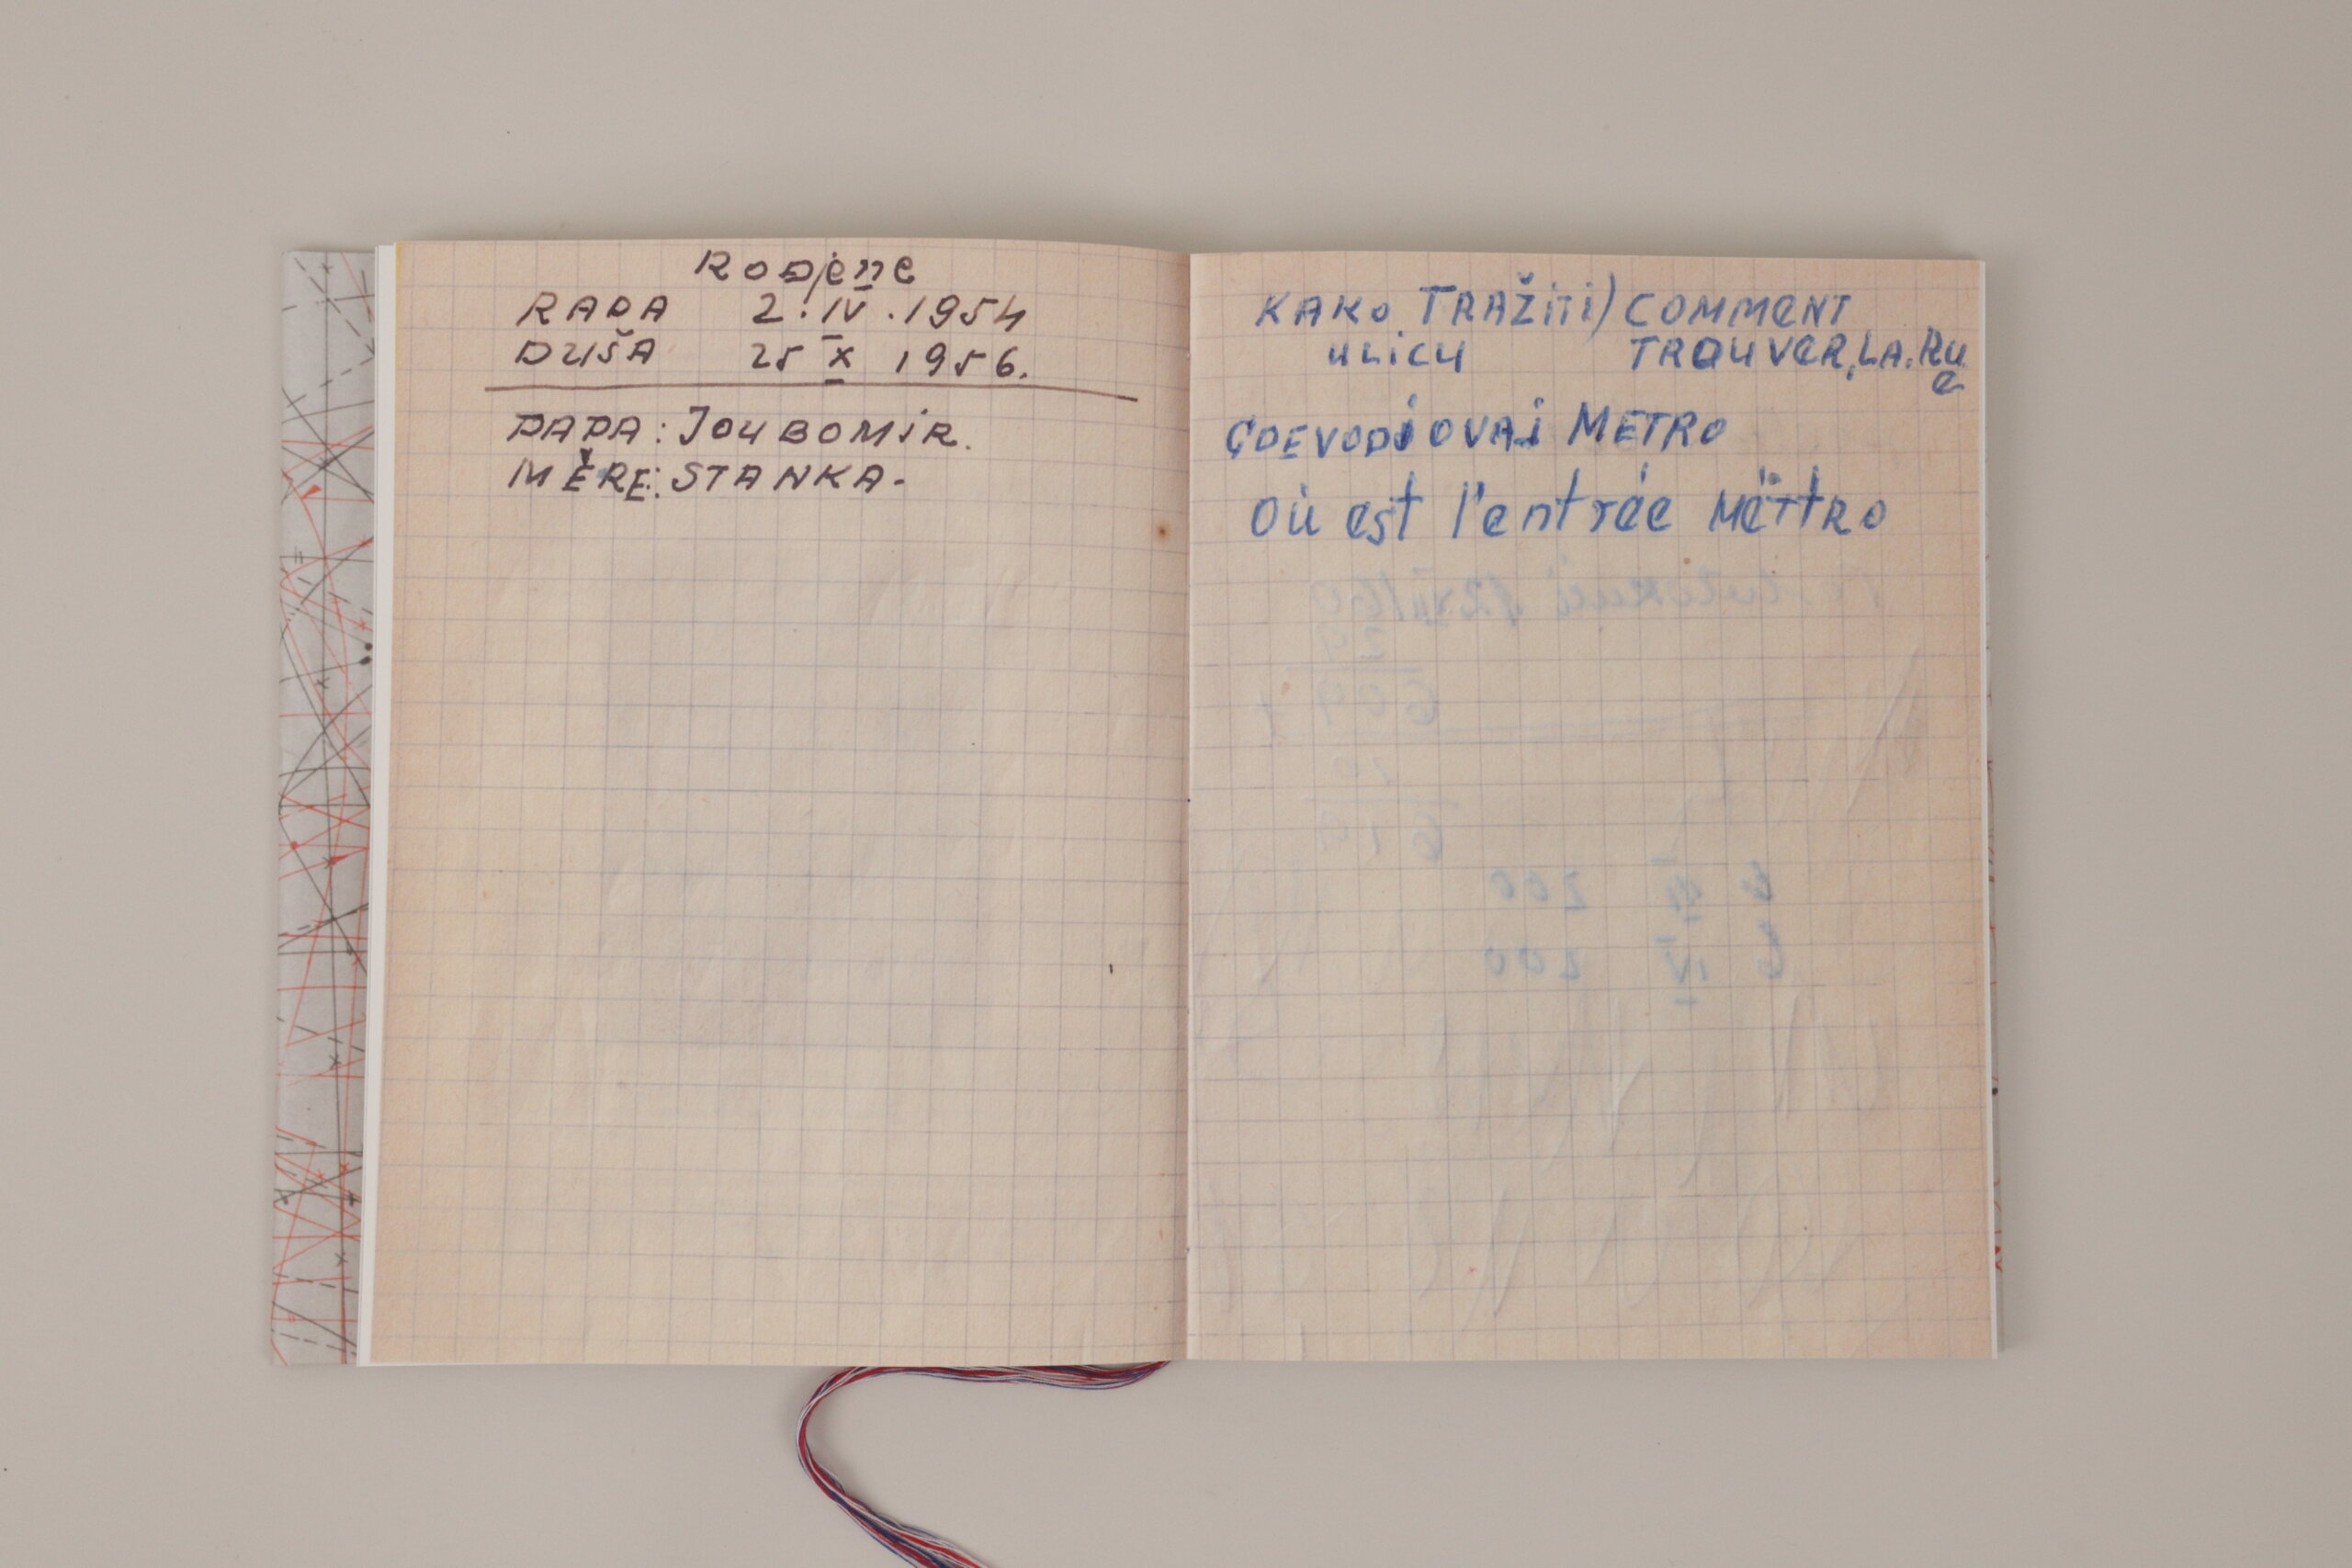 Rodjene
RADA 2. IV. 1954
DUŠA 25 X 1956.
PAPA: JOUBOMIR.
MĚRE: STANKA.
KAKO TRAŽITI) COMMENT
ULICU TROUVER, LA. RU
e
GDEVODIOVAJ METRO
Où est l'entrée MËTTRO